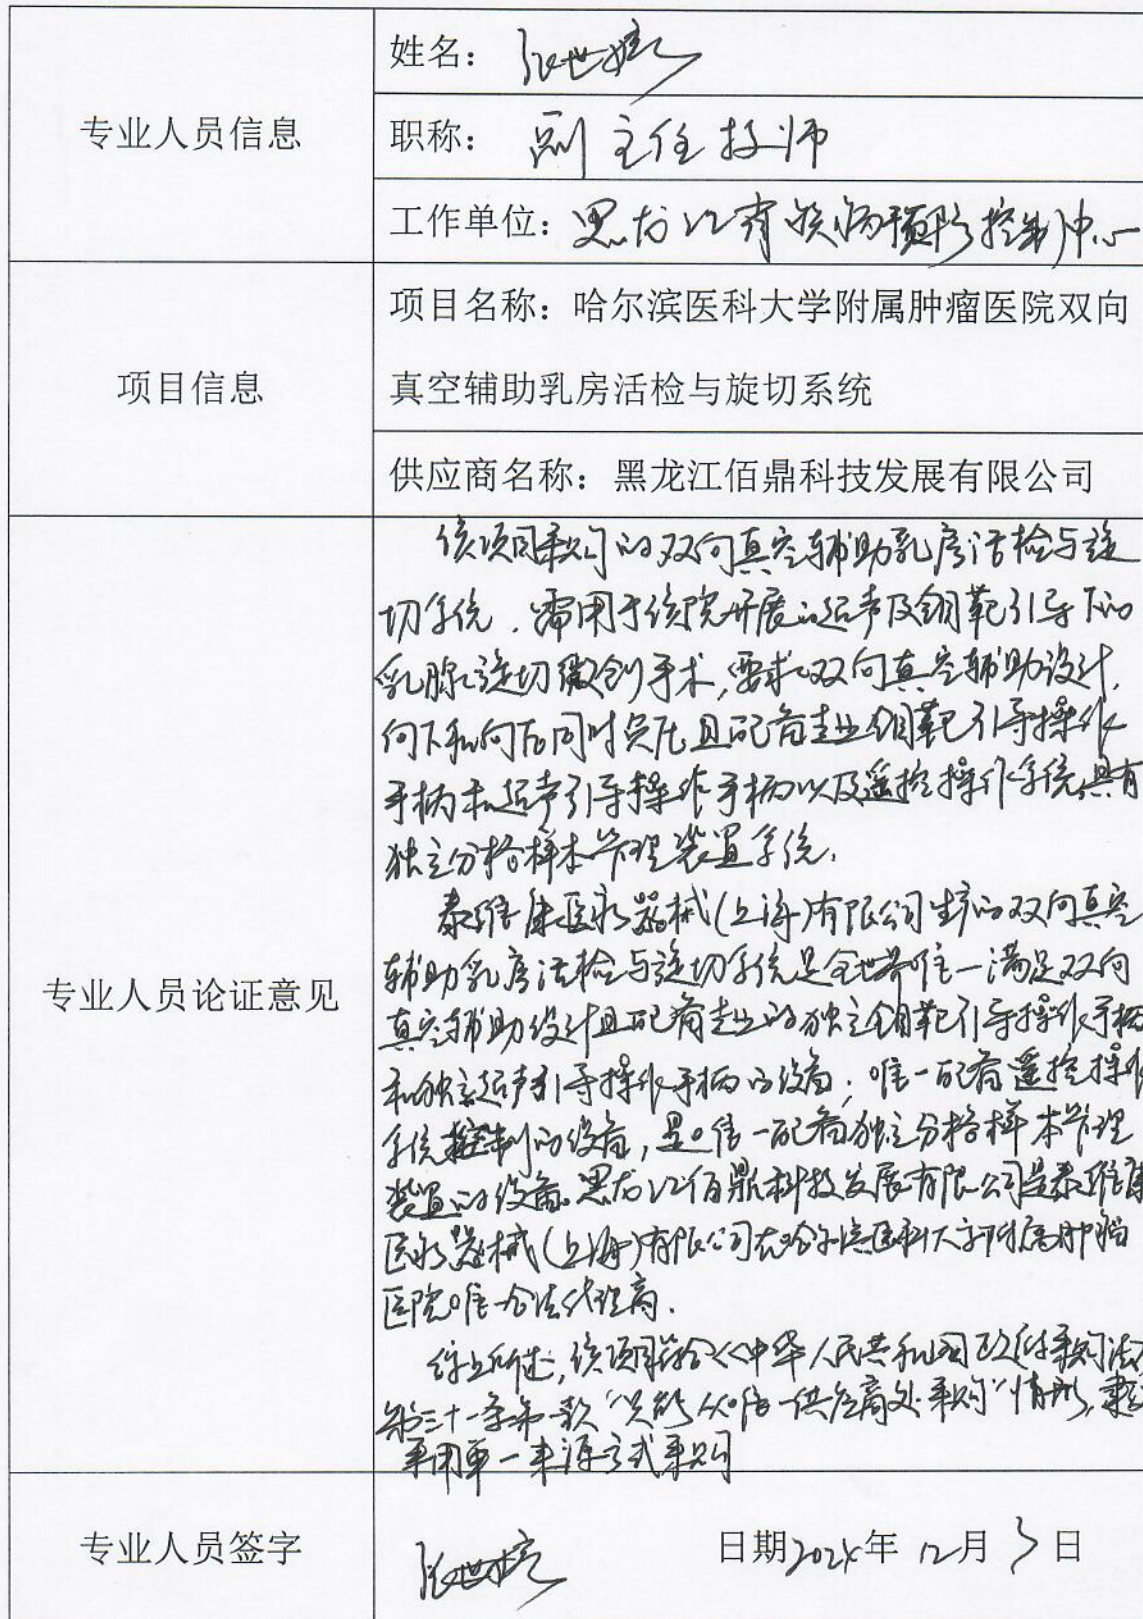 专业人员信息
姓名：张世
职称：副主任技师
工作单位：黑龙江省疾病预防控制中心
项目信息
项目名称：哈尔滨医科大学附属肿瘤医院双向
真空辅助乳房活检与旋切系统
供应商名称：黑龙江佰鼎科技发展有限公司
专业人员论证意见
该项目采购的双向真空辅助乳房活检与旋
切系统，需用于该院开展的超声及钼靶引导下的
乳腺旋切微创手术，要求双向真空辅助设计，
向下和向后同时负压且配备专业钼靶引导操作
手柄和超声引导操作手柄以及遥控操作系统，具有
独立分格样本管理装置系统。
泰维康医疗器械(上海)有限公司生产的双向真空
辅助乳房活检与旋切系统是全世界唯一满足双向
真空辅助设计且配备专业的独立钼靶引导操作手柄
和独立超声引导操作手柄的设备；唯一配备遥控操作
系统控制的设备，是唯一配备独立分格样本管理
装置的设备。黑龙江佰鼎科技发展有限公司是泰维康
医疗器械(上海)有限公司在哈尔滨医科大学附属肿瘤
医院唯一合法代理商。
综上所述，该项目符合《中华人民共和国政府采购法》
第三十一条第一款“只能从唯一供应商处采购”情形，
采用单一来源方式采购
专业人员签字
张世
日期2024年12月3日